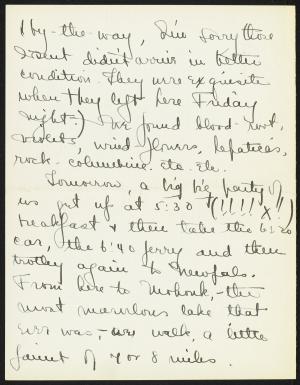 (by-the-way, I'm sorry those
I sent didn't arrive in better
condition. They were exquisite
when they left here Friday
night.) We found blood-root,
violets, wind flowers, hepaticas,
rock-columbine etc. etc.
Tomorrow, a big big party of
us get up at 5:30 (!!!!X!!)
breakfast & then take the 6:20
car, the 6:40 ferry and then
trolley again to New Paltz.
From here to Mohonk,- the
most marvelous lake that
ever was,- we walk, a little
jaunt of 7 or 8 miles.